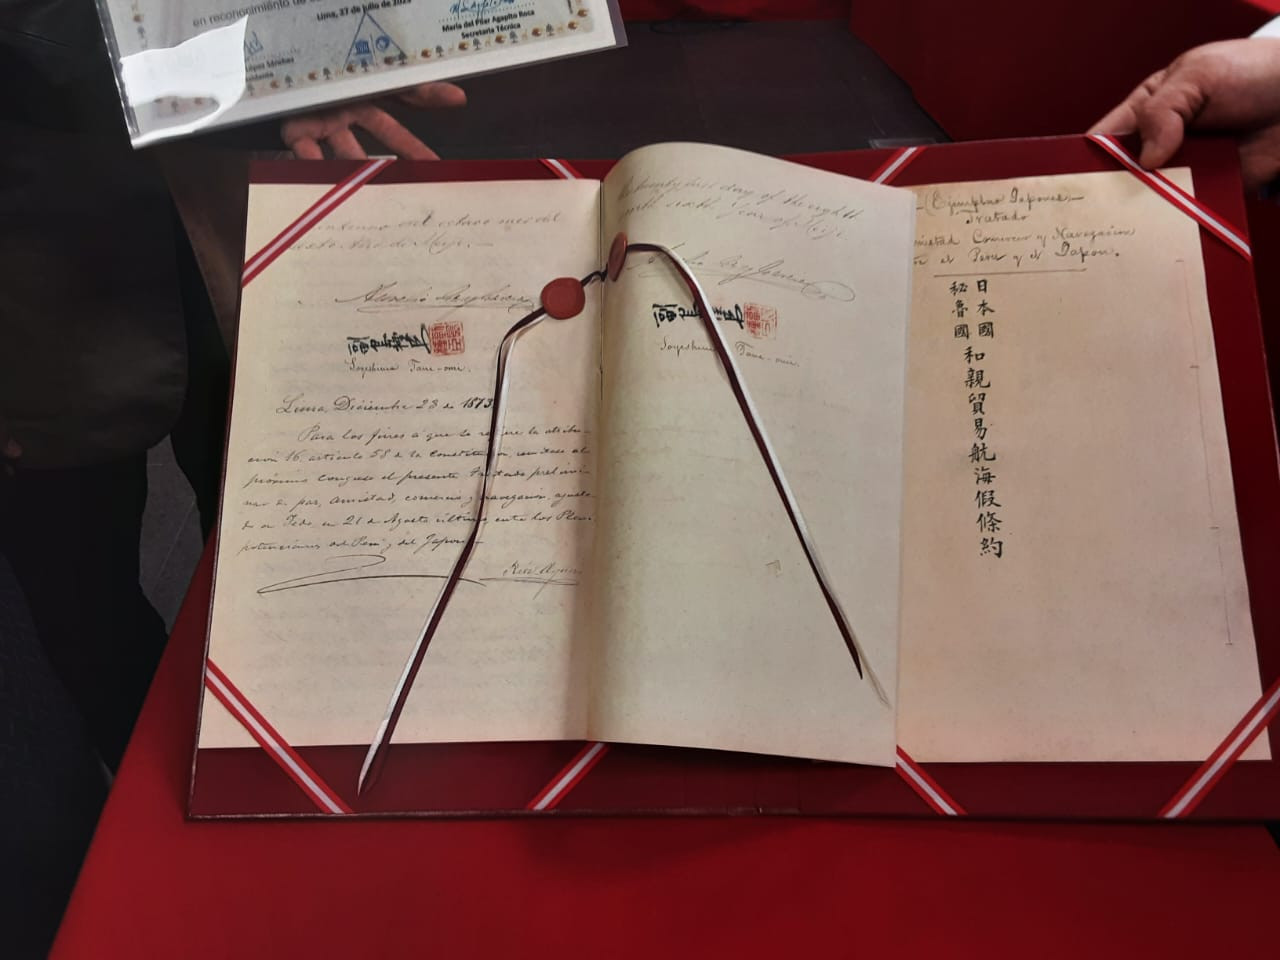 en reconocimiento de
Lima, 27 de julio de 2023
María del Pilar Agapito Roca
Secretaria Técnica
López Sánchez
del octavo mes del
sexto Año de Meiji.—
Aurelio García y García
副島種臣
Soyeshima Tane-omi.
Lima, Diciembre 23 de 1873
Para los fines a que se refiere la atribu-
ción 16, artículo 58 de la Constitución, al
próximo Congreso el presente Tratado prelimi-
nar de paz, amistad, comercio y navegación, ajusta-
do en Yedo, en 21 de Agosto último, entre los Pleni-
potenciarios del Perú y del Japón
Riva Agüero
the twenty first day of the eighth
month sixth Year of Meiji.
副島種臣
Soyeshima Tane-omi.
(Ejemplar Japonés)
Tratado
Amistad Comercio y Navegación
el Perú y el Japón.
日本國
秘魯國
和親貿易航海假條約